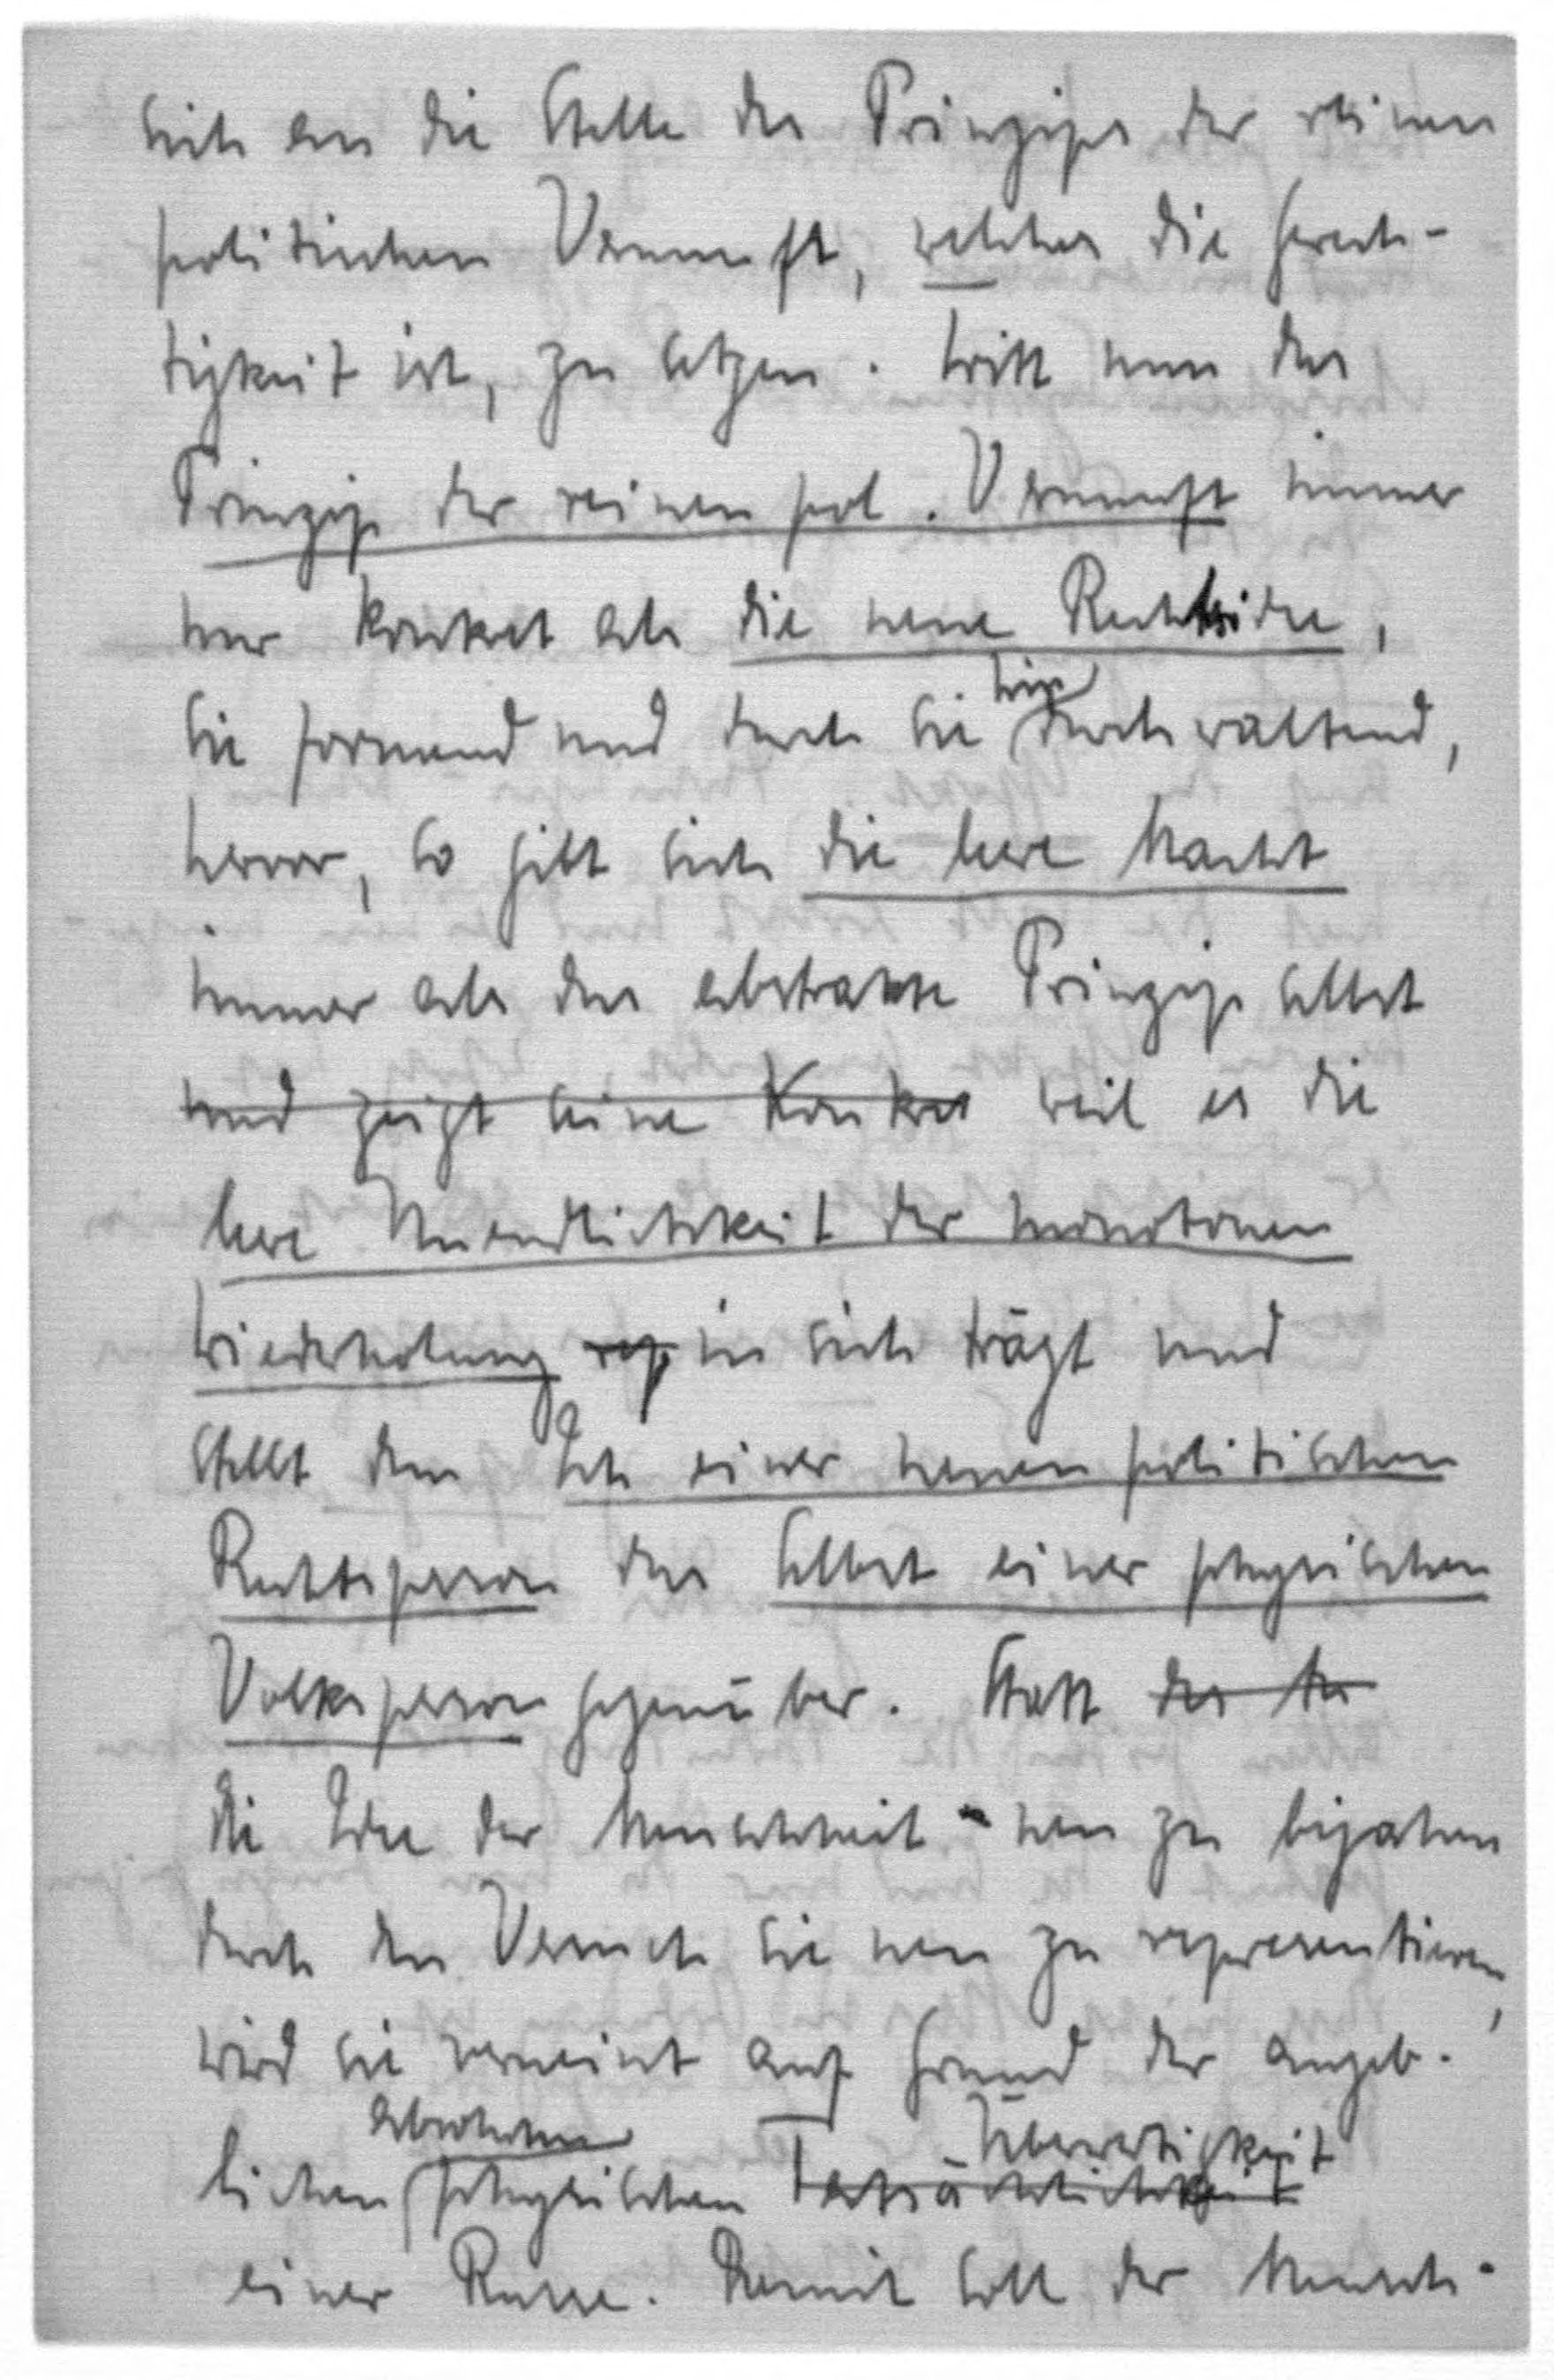 sich an die Stelle des Prinzipes der reinen
politischen Vernunft, welches die Gerech-
tigkeit ist, zu setzen. Tritt nun das
Prinzip der reinen pol. Vernunft immer
nur konkret als die neue Rechtsidee,
sie formend und durch sie hindurch waltend,
hervor, so gibt sich die leere Macht
immer als das abstrakte Prinzip selbst
und zeigt seine Konkret weil es die
leere Unendlichkeit der monotonen
Wiederholung rep in sich trägt und
stellt dem Ich einer neuen politischen
Rechtsperson das Selbst einer physischen
Volksperson gegenüber. Statt des der
die Idee der Menschheit neu zu bejahen
durch den Versuch sie neu zu representieren,
wird sie verneint auf Grund der angeb-
absoluten Überwertigkeit
lichen physischen Tatsächlichkeit
einer Rasse. Damit soll der Mensch-